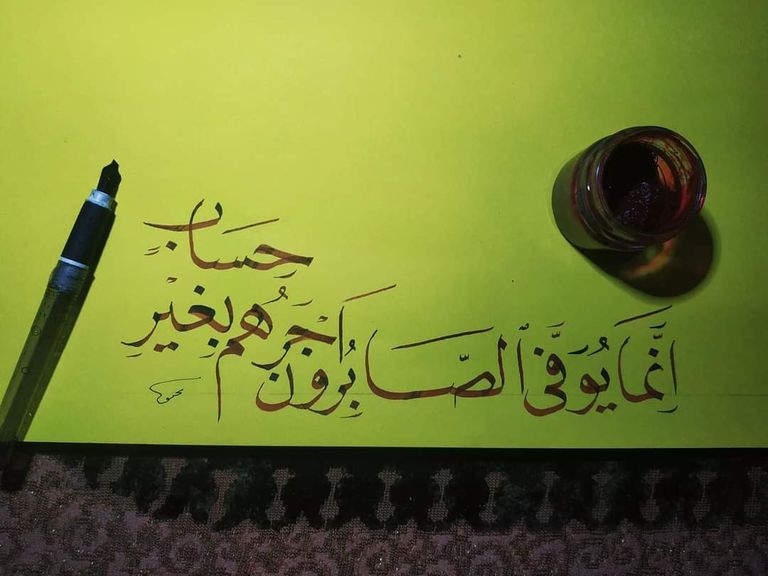 إِنَّمَا يُوَفَّى ٱلصَّابِرُونَ أَجْرَهُم بِغَيْرِ حِسَابٍ